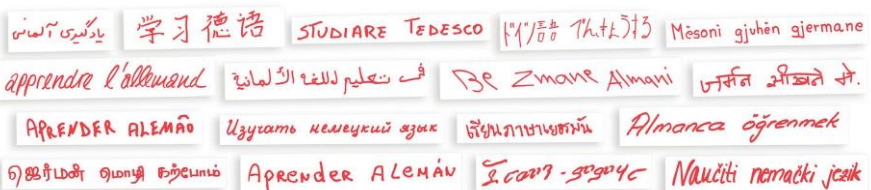 یادگیری آلمانی
学习德语
STUDIARE TEDESCO
ドイツ語
Mësoni gjuhën gjermane
apprendre l'allemand
في تعليم للغة الألمانية
Be Zmane Almani
जर्मन सीखते मे.
APRENDER ALEMÃO
Изучать немецкий язык
เรียนภาษาเยอรมัน
Almanca öğrenmek
ஜெர்மன் மொழி கற்போம்
APRENDER ALEMÁN
Naučiti nemački jezik